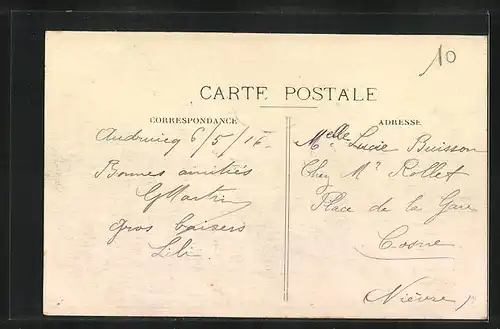 10
CARTE POSTALE
CORRESPONDANCE
Audruicq 6/5/16.
Bonnes amitiés
GMartin
gros baisers
Lili
ADRESSE
Melle Lucie Buisson
Chez Mr Rollet
Place de la Gare
Cosne
Nièvre